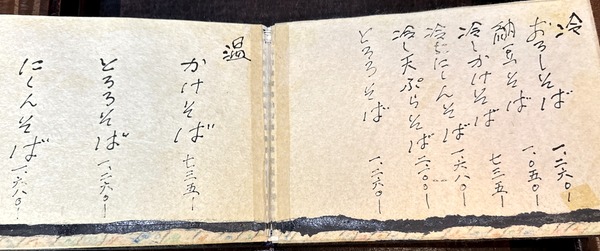 冷
おろしそば 一、二六〇ー
納豆そば 一、〇五〇ー
冷しかけそば 七三五ー
冷しにしんそば 一、六八〇ー
冷し天ぷらそば
とろろそば 一、二六〇ー
温
かけそば 七三五ー
とろろそば 一、二六〇ー
にしんそば 一、六八〇ー